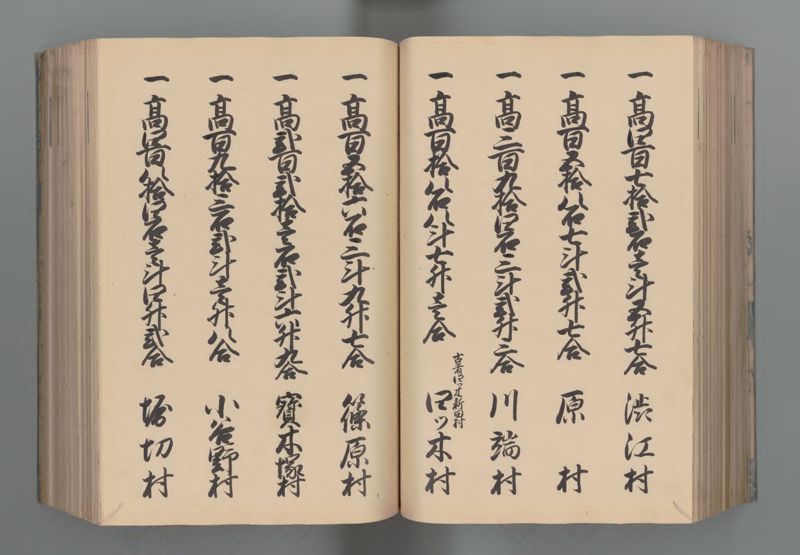 一高四百七拾弐石壱斗五升七合　渋江村
一高百五拾八石七斗弐升七合　原村
一高三百九拾四石三斗弐升三合　川端村
一高百拾八石八斗七升壱合　古者四ッ木新田村　四ッ木村
一高百五拾六石三斗九升七合　篠原村
一高弐百弐拾壱石弐斗六升九合　寳木塚村
一高百九拾三石弐斗壱升八合　小谷野村
一高四百八拾四石壱斗四升弐合　堀切村